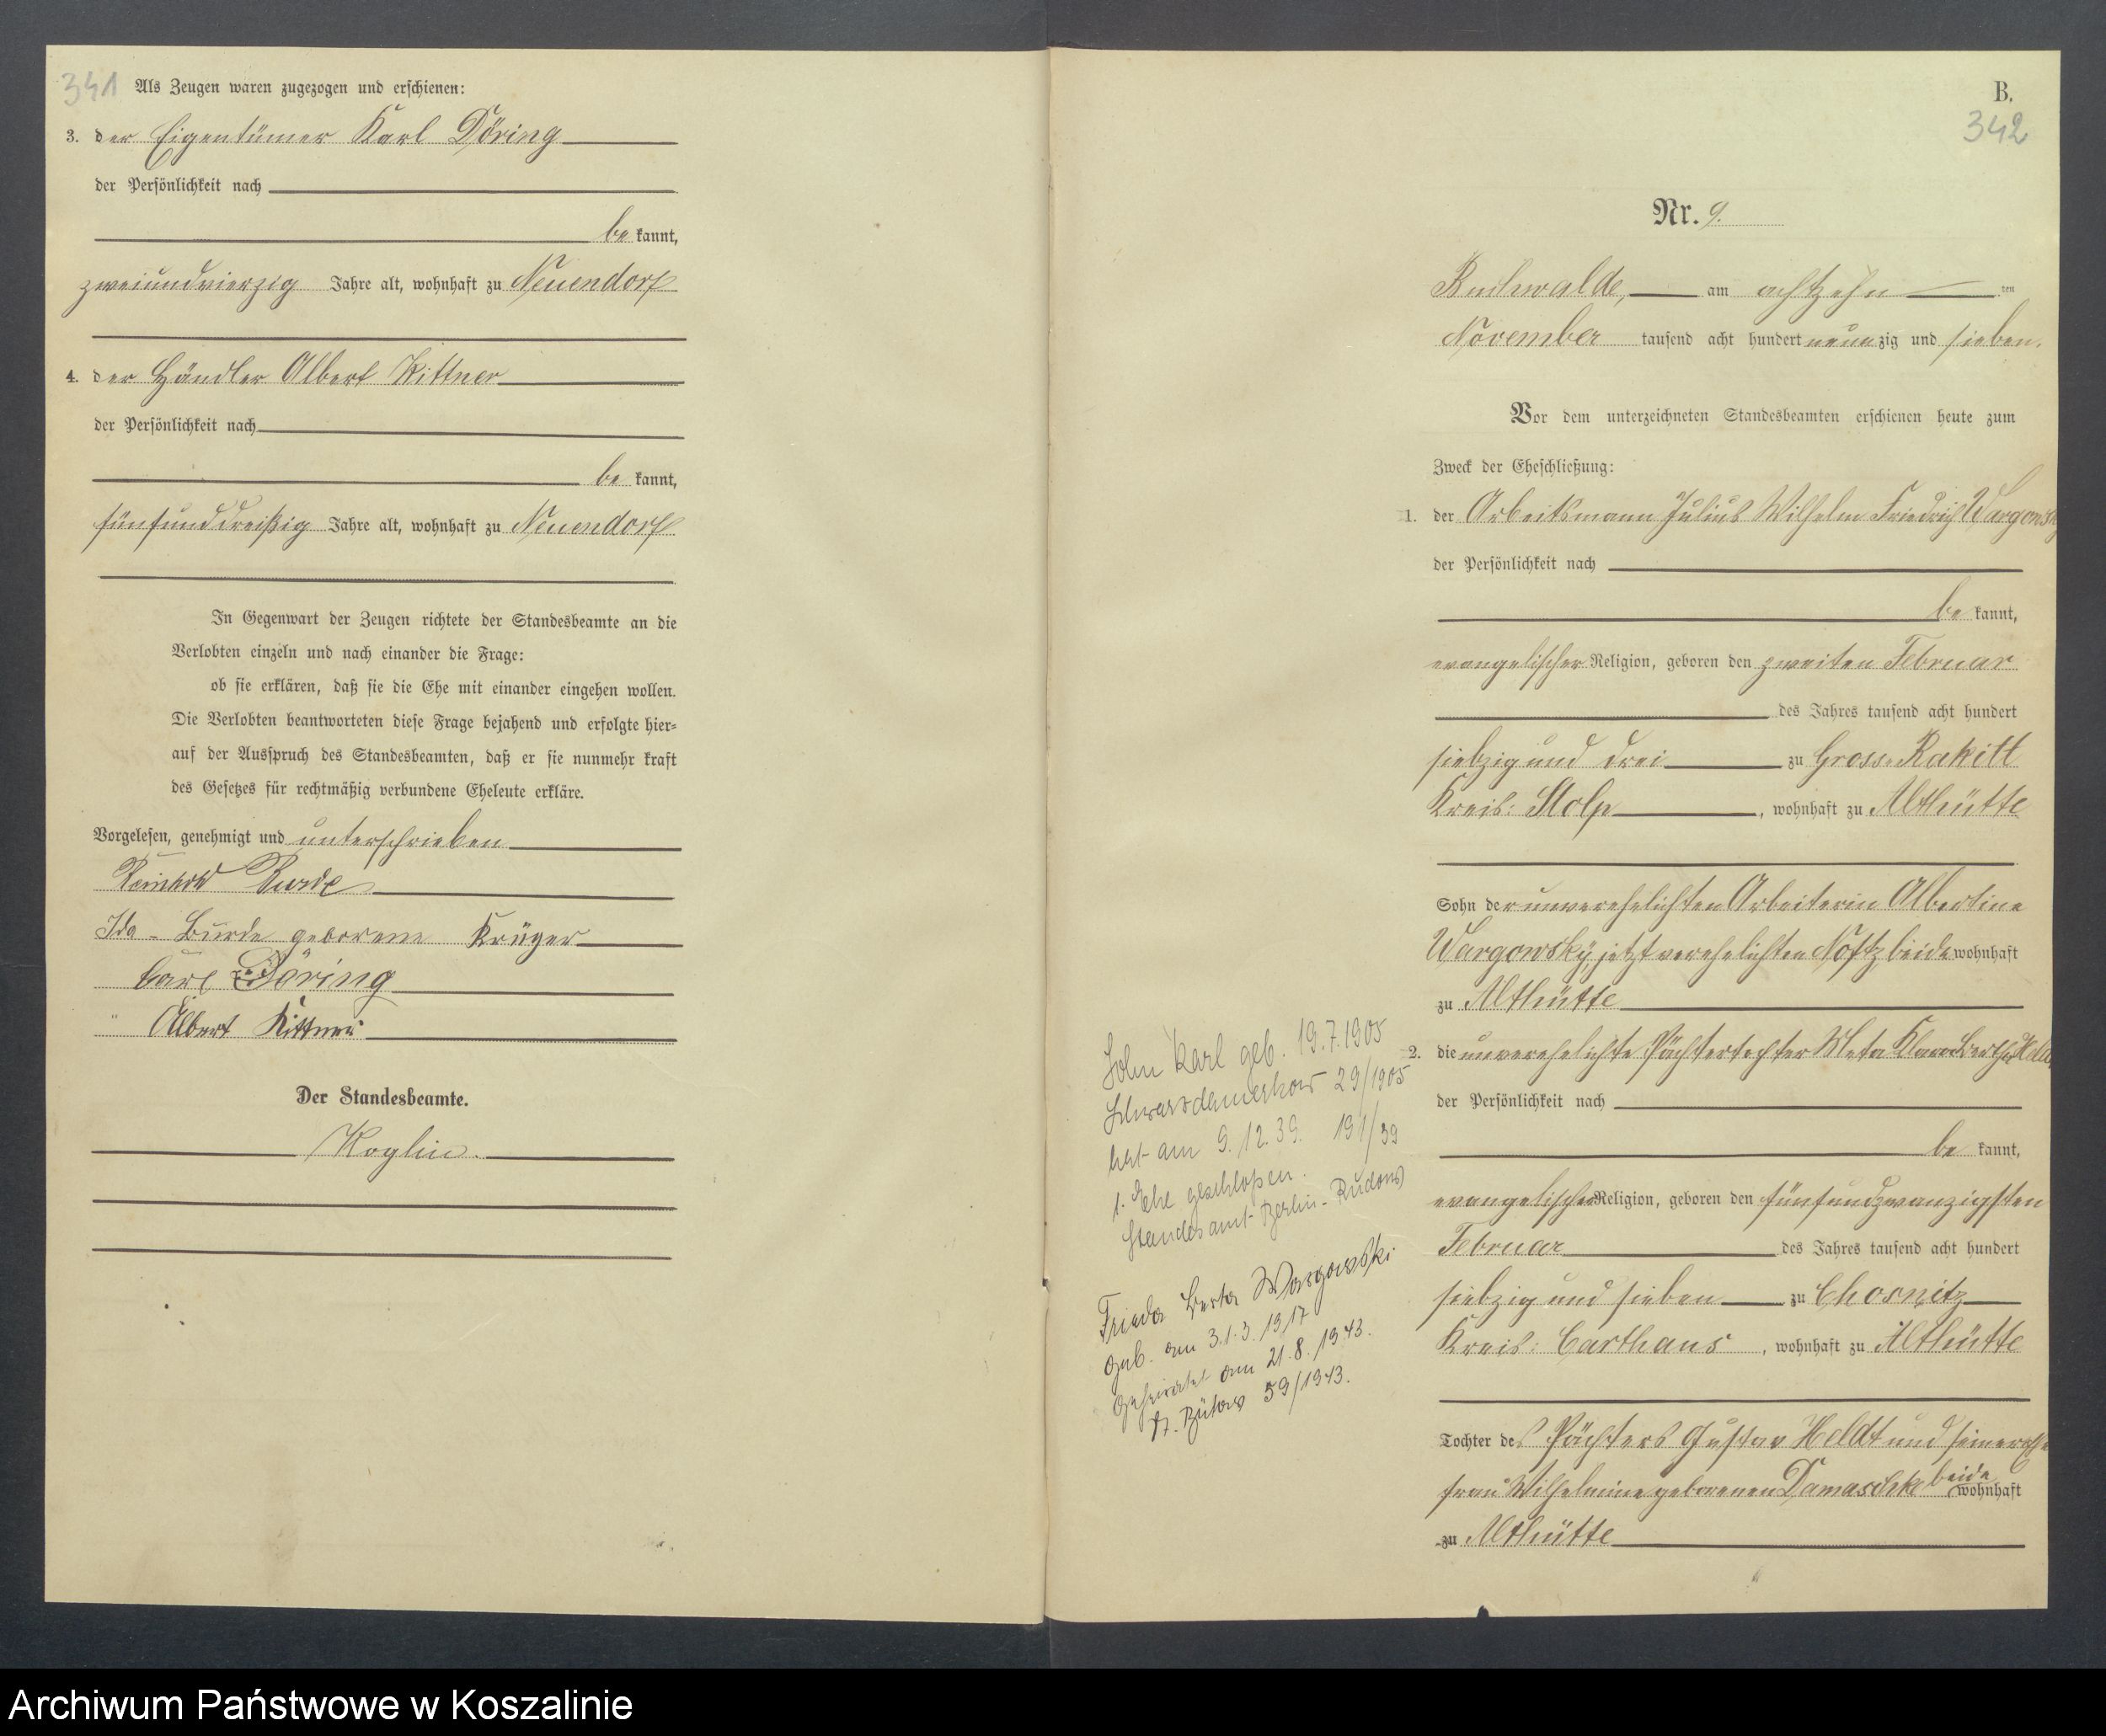 341
Als Zeugen waren zugezogen und erschienen:
3. der Eigentümer Karl Döring
der Persönlichkeit nach
be kannt,
zweiundvierzig Jahre alt, wohnhaft zu Neuendorf
4. der Händler Albert Kittner
der Persönlichkeit nach
be kannt,
fünfunddreißig Jahre alt, wohnhaft zu Neuendorf
In Gegenwart der Zeugen richtete der Standesbeamte an die
Verlobten einzeln und nach einander die Frage:
ob sie erklären, daß sie die Ehe mit einander eingehen wollen.
Die Verlobten beantworteten diese Frage bejahend und erfolgte hier-
auf der Ausspruch des Standesbeamten, daß er sie nunmehr kraft
des Gesetzes für rechtmäßig verbundene Eheleute erkläre.
Vorgelesen, genehmigt und unterschrieben
Reinhold Burde
Ida - Burde geborene Krüger
Carl Döring
Albert Kittner
Der Standesbeamte.
Koglin.
B.
342
Nr. 9.
am achtzehn ten
November tausend acht hundert neunzig und sieben.
Vor dem unterzeichneten Standesbeamten erschienen heute zum
Zweck der Eheschließung:
1. der Arbeitsmann Julius Wilhelm Friedrich Wargowsky
der Persönlichkeit nach
be kannt,
evangelischer Religion, geboren den zweiten Februar
des Jahres tausend acht hundert
siebzig und drei zu Gross-Rakitt
Kreis: Stolp, wohnhaft zu Althütte
Sohn der unverehelichten Arbeiterin Albertine
Wargowsky, jetzt verehelichten beide wohnhaft
zu Althütte
2. die unverehelichte Pächtertochter Meta Klara Bertha Heldt
der Persönlichkeit nach
be kannt,
evangelischer Religion, geboren den fünfundzwanzigsten
Februar des Jahres tausend acht hundert
siebzig und sieben zu Chosnitz
Kreis: Carthaus, wohnhaft zu Althütte
Tochter des Pächters Gustav Heldt und seiner Ehe
frau Wilhelmine geborenen Damaschke beide wohnhaft
zu Althütte
Sohn Karl geb. 19.7.1905
Schwarzdamerkow 29/1905
hat am 9.12.39. 191/39
1. Ehe geschlossen.
Standesamt Berlin-Rudow
Frieda Berta Wargowski
geb. am 31.3.1917
geheiratet am 21.8.1943.
St. Bütow 59/1943.
Archiwum Państwowe w Koszalinie